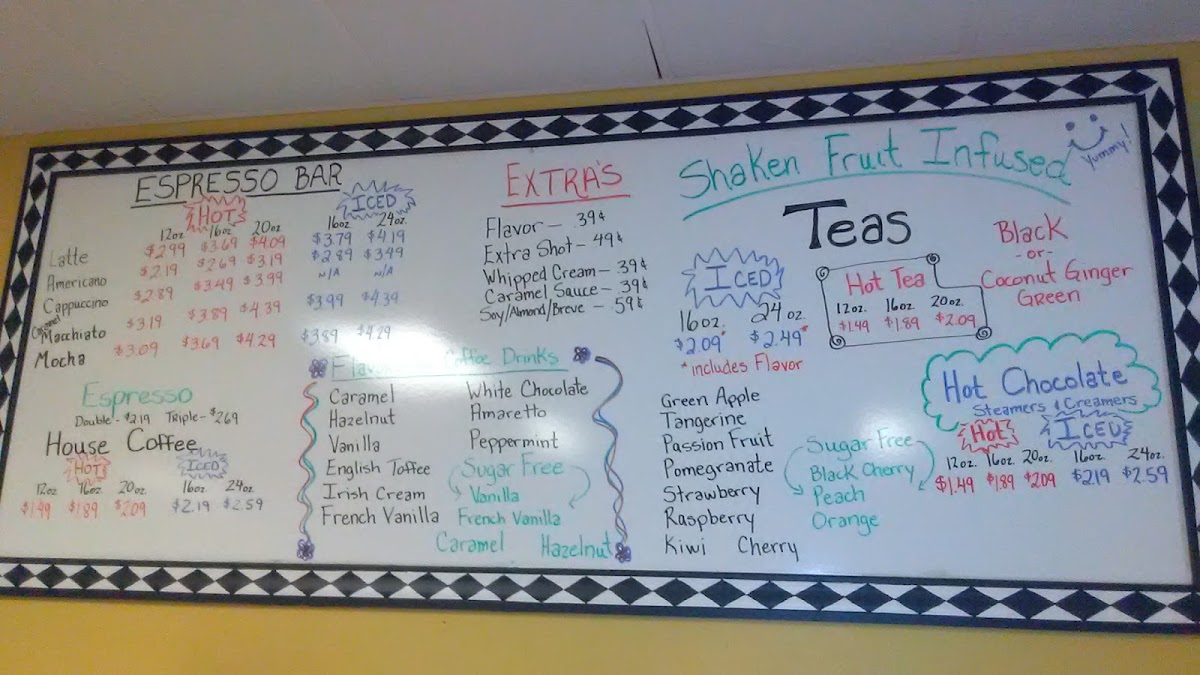 ESPRESSO BAR
HOT ICED
12oz 16oz 20oz 16oz 24oz
Latte $2.99 $3.69 $4.09 $3.79 $4.19
Americano $2.19 $2.69 $3.19 $2.89 $3.49
Cappuccino $2.89 $3.49 $3.99 N/A N/A
Caramel Macchiato $3.19 $3.89 $4.39 $3.99 $4.39
Mocha $3.09 $3.69 $4.29 $3.89 $4.29
Espresso
Double - $2.19 Triple - $2.69
House Coffee
HOT ICED
12oz 16oz 20oz 16oz 24oz
$1.49 $1.89 $2.09 $2.19 $2.59
EXTRA'S
Flavor — 39¢
Extra Shot - 49¢
Whipped Cream — 39¢
Caramel Sauce - 39¢
Soy/Almond/Breve - 59¢
Coffee Drinks
Caramel White Chocolate
Hazelnut Amaretto
Vanilla Peppermint
English Toffee Sugar Free
Irish Cream Vanilla
French Vanilla French Vanilla
Caramel Hazelnut
Shaken Fruit Infused
Yummy!
Teas
ICED
16oz. 24oz.
$2.09* $2.49*
*includes Flavor
Hot Tea
12oz. 16oz. 20oz.
$1.49 $1.89 $2.09
Black
-or-
Coconut Ginger
Green
Green Apple
Tangerine
Passion Fruit
Pomegranate
Strawberry
Raspberry
Kiwi Cherry
Sugar Free
Black Cherry
Peach
Orange
Hot Chocolate
Steamers & Creamers
Hot ICED
12oz. 16oz. 20oz. 16oz. 24oz.
$1.49 $1.89 $2.09 $2.19 $2.59